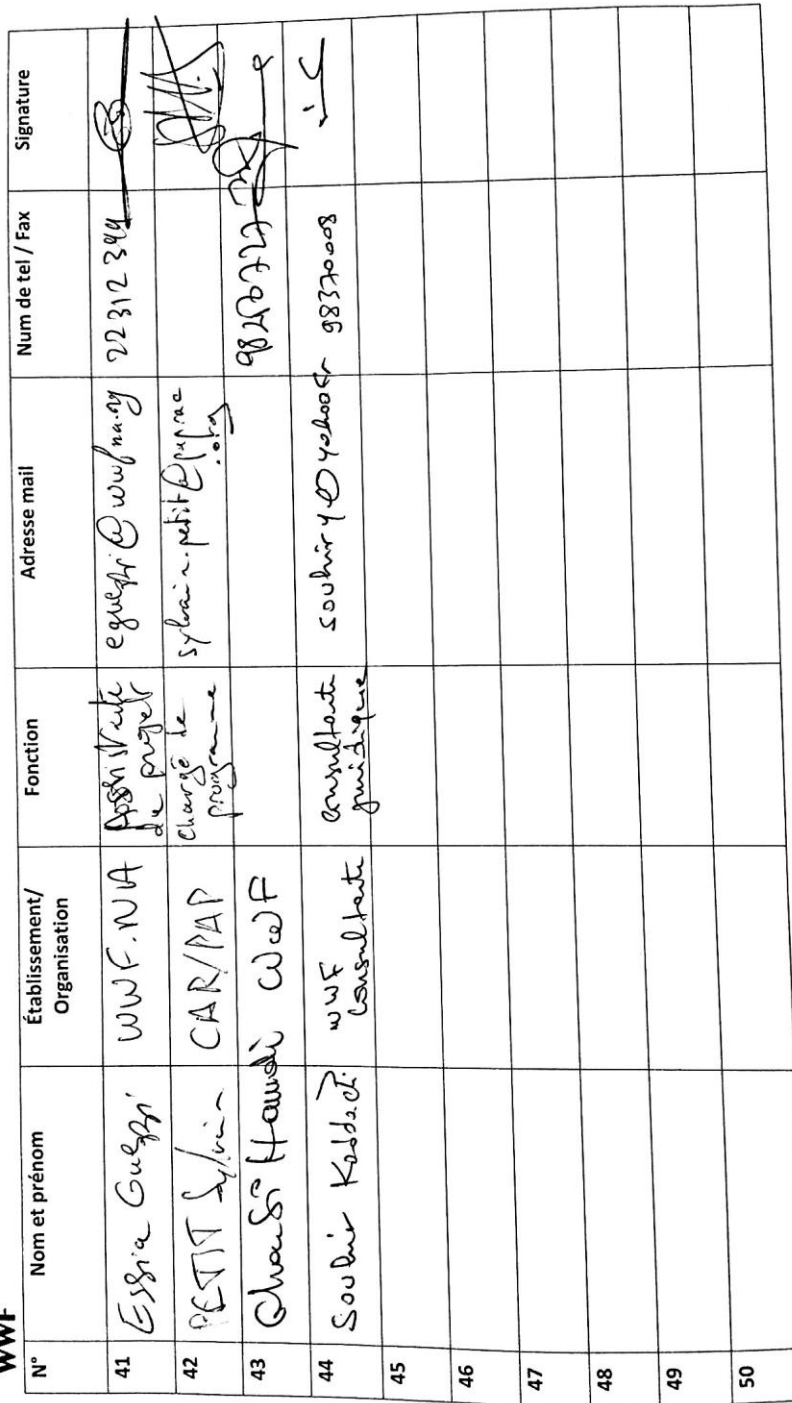 WWF
N° Nom et prénom Établissement/ Organisation Fonction Adresse mail Num de tel / Fax Signature
41 Essia Guezzi WWF.NA Assistante de projet eguezzi@wwfna.org 22312 344
42 PETIT Sylvain CAR/PAP chargé de programme sylvain.petit@paprac.org
43 Hamdi WWF
44 Souhir Kaddachi WWF consultante consultante juridique souhiry@yahoo.fr 98370008
45
46
47
48
49
50